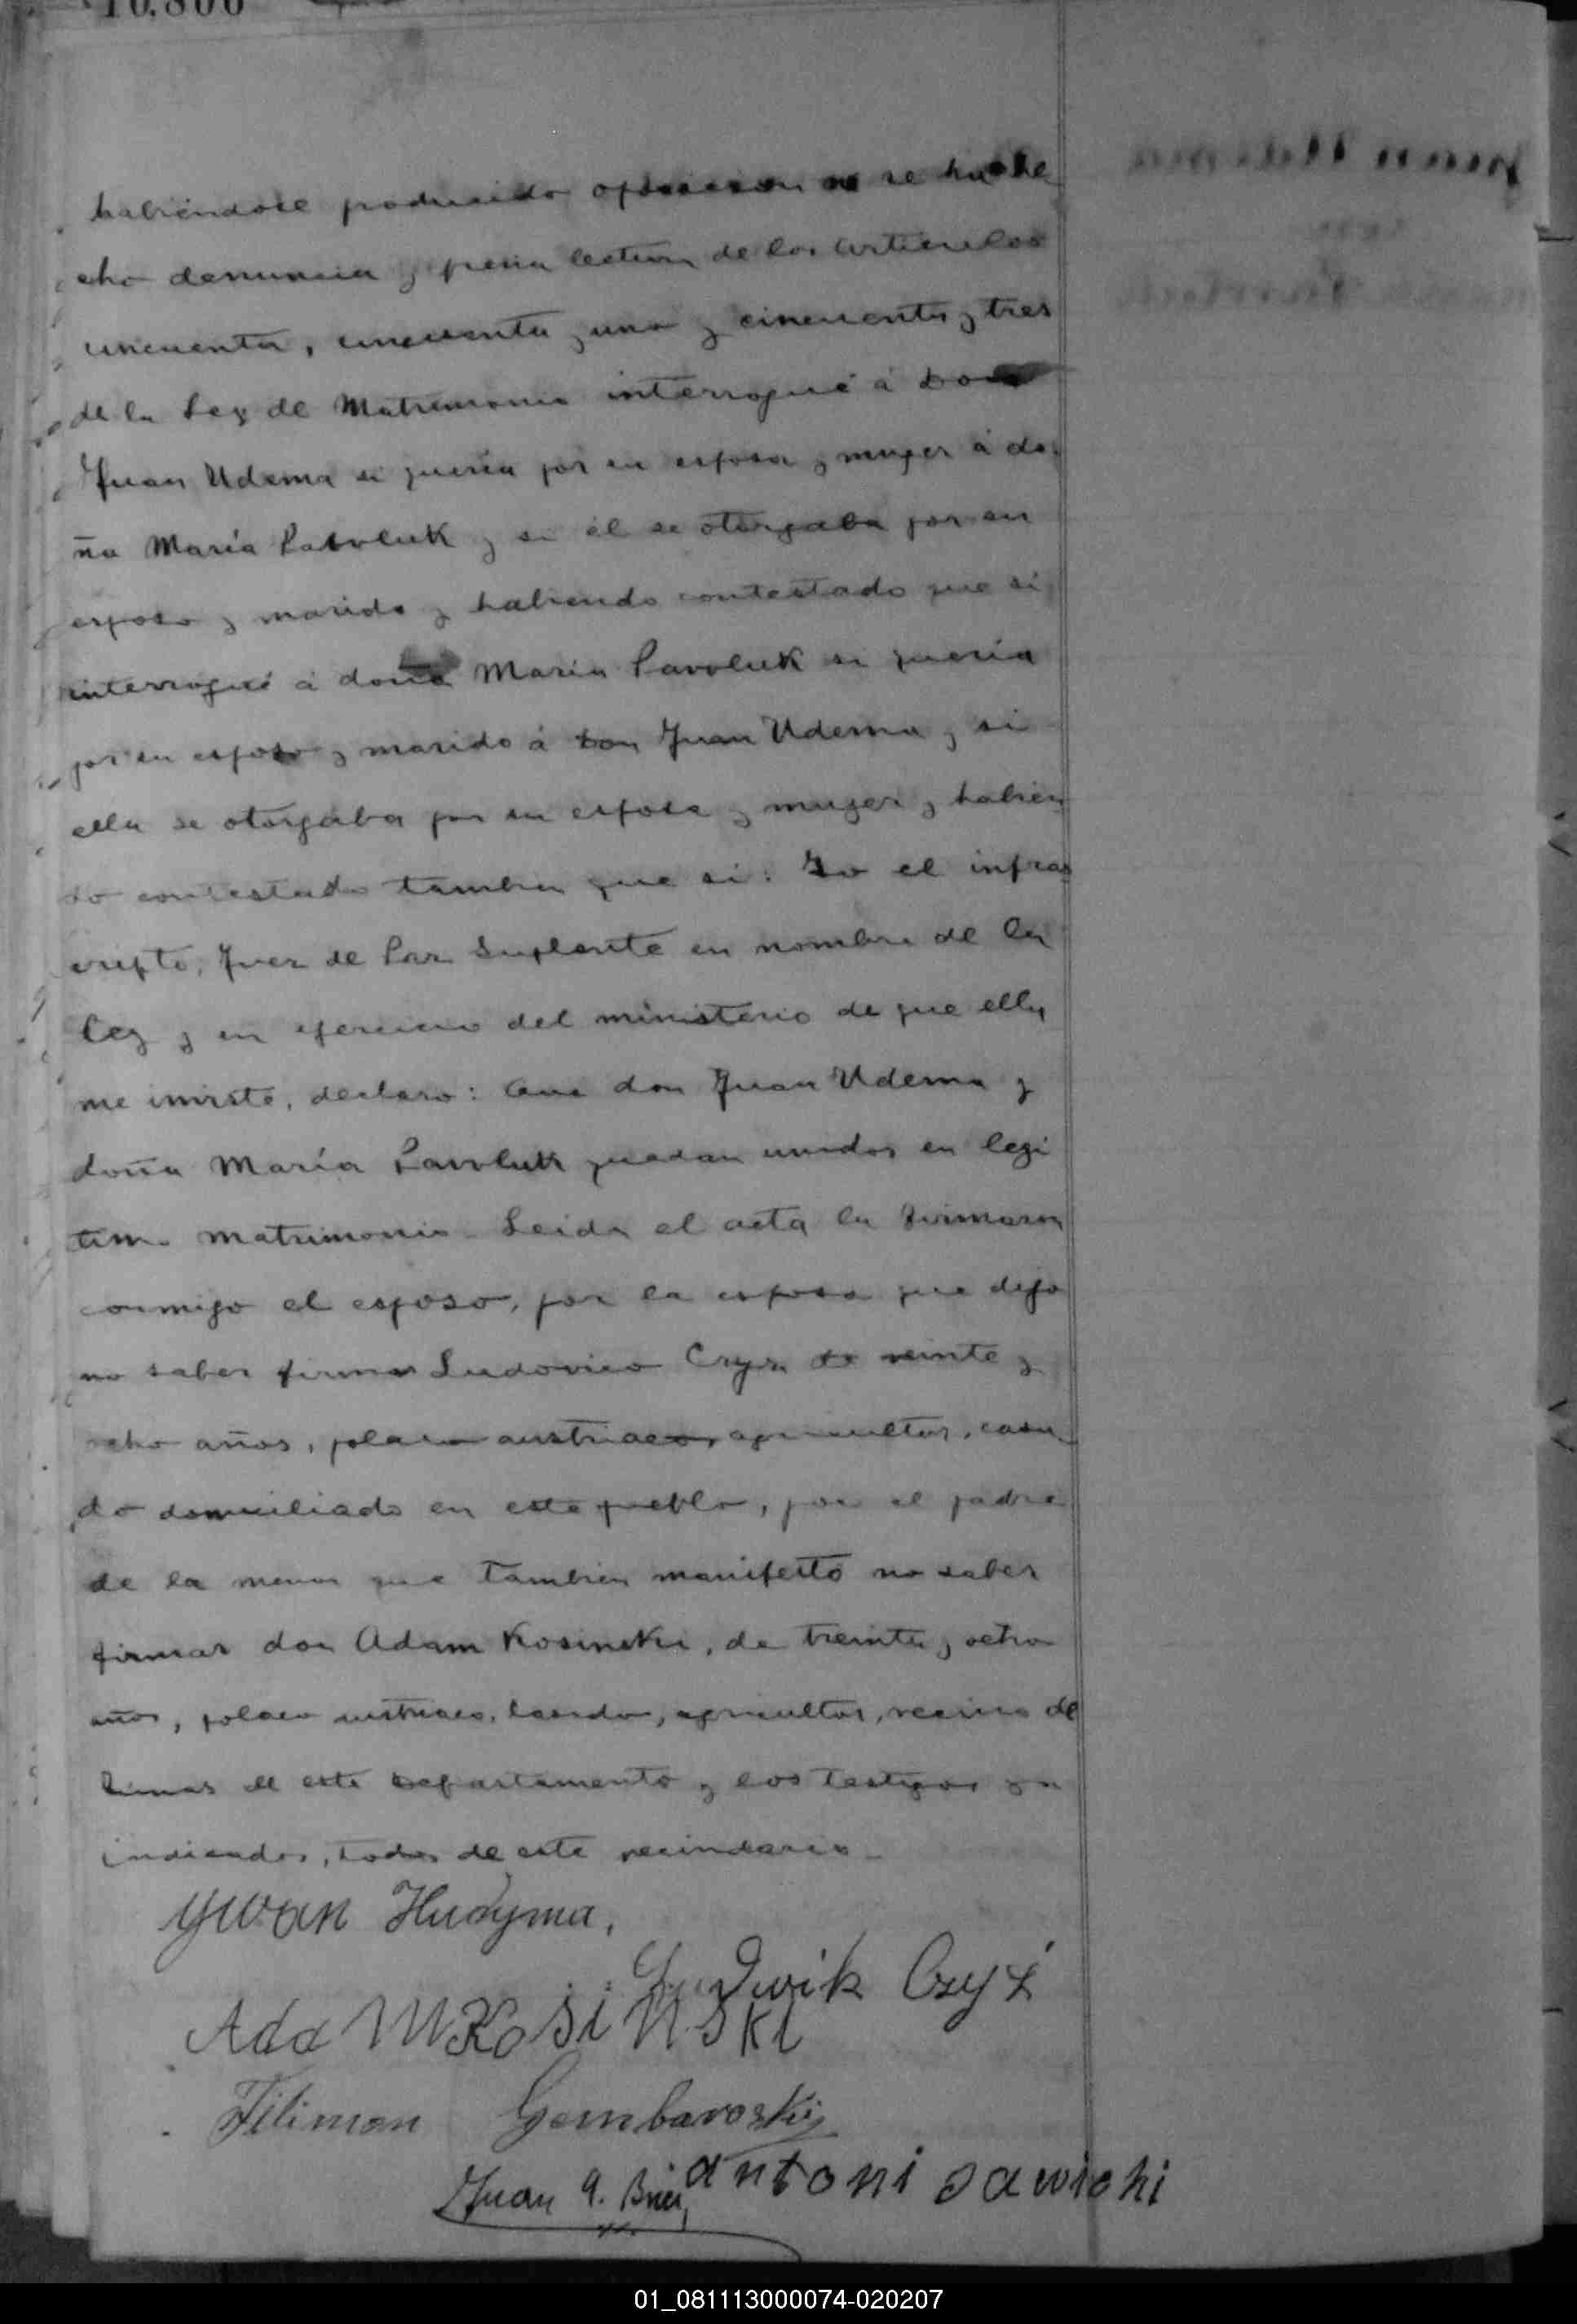 10.800
habiéndose producido oposicion ni se ha he
cho denuncia y previa lectura de los articulos
cincuenta, cincuenta y uno y cincuenta y tres
de la Ley de Matrimonio interrogué á Don
Juan Udema si queria por su esposa y muger á do
ña María Pavoluk y si él se otorgaba por su
esposo y marido y habiendo contestado que si
interrogué á doña María Pavoluk si queria
por su esposo y marido á Don Juan Udema y si
ella se otorgaba por su esposa y muger y habien
do contestado tambien que si: Yo el infras
cripto, Juez de Paz Suplente en nombre de la
ley y en ejercicio del ministerio de que ella
me inviste, declaro: Que don Juan Udema y
doña María Pavoluk quedan unidos en legi
timo matrimonio. Leida el acta la firmaron
conmigo el esposo, por la esposa que dijo
no saber firmar Ludovico Czyz de veinte y
ocho años, polaco austriaco, agricultor, casa
do domiciliado en este pueblo, por el padre
de la menor que tambien manifestó no saber
firmar don Adam Kosinski, de treinta y ocho
años, polaco austriaco, casado, agricultor, vecino de
de este Departamento y los testigos ya
indicados, todos de este vecindario.
Ywan Hudyma,
Ludwik Czyż
Adam Kosinski
Filimon Gembaroskij
Antoni Sawicki
Juan A.
01_081113000074-020207